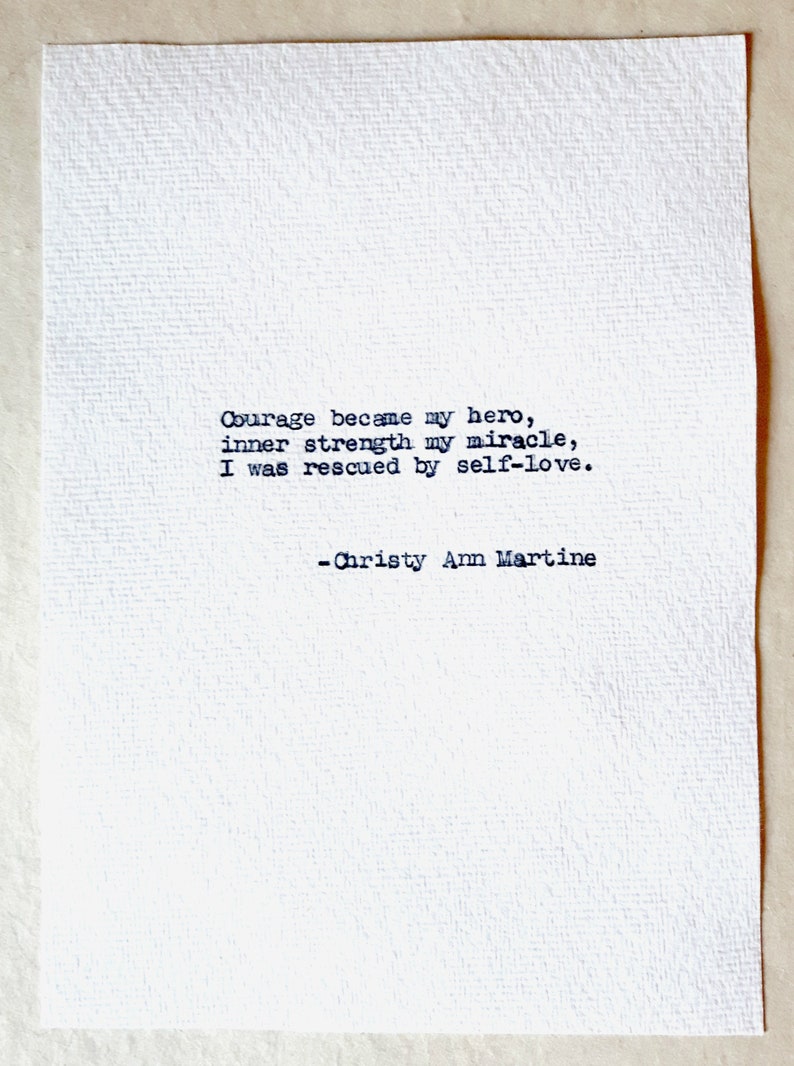 Courage became my hero,
inner strength my miracle,
I was rescued by self-love.
-Christy Ann Martine